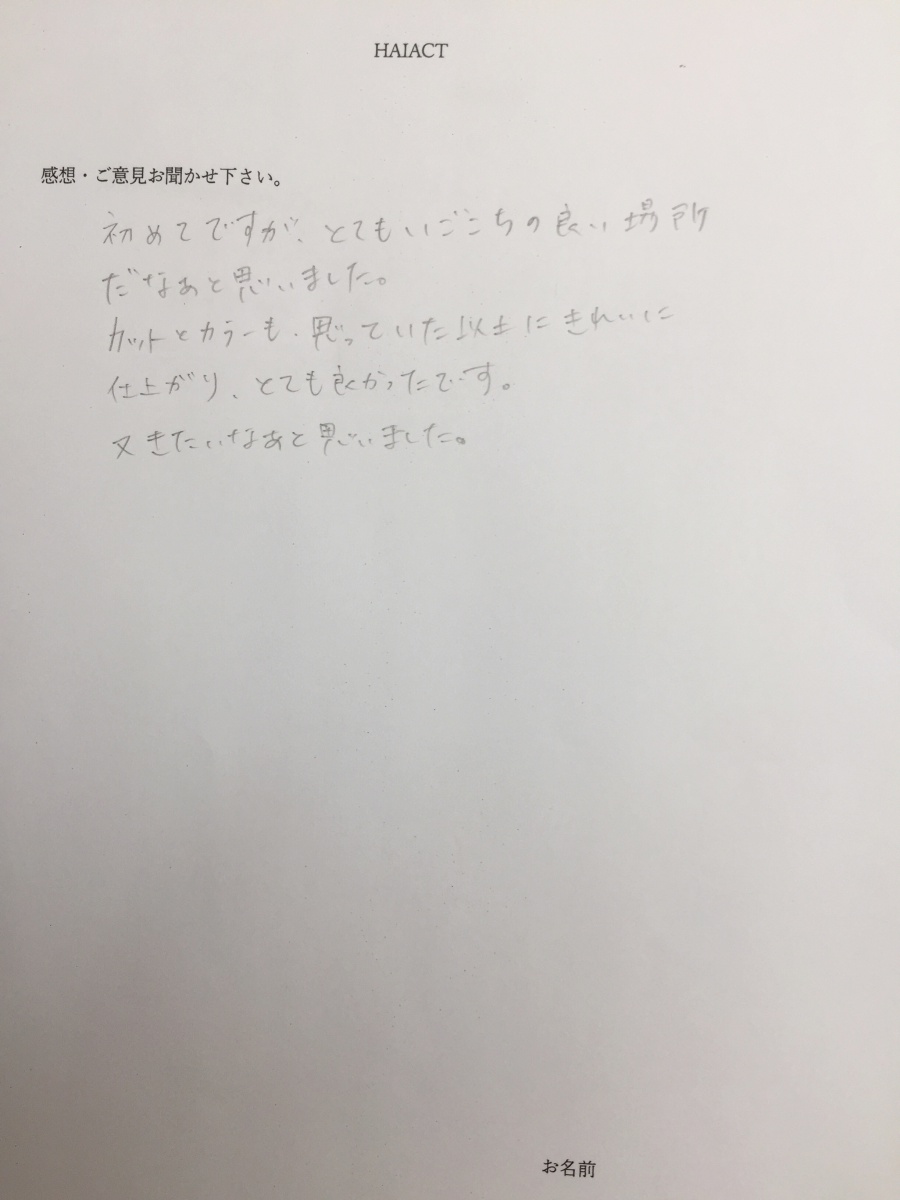 HAIACT
感想・ご意見お聞かせ下さい。
初めてですが、とてもいごこちの良い場所
だなぁと思いました。
カットとカラーも、思っていた以上にきれいに
仕上がり、とても良かったです。
又きたいなあと思いました。
お名前